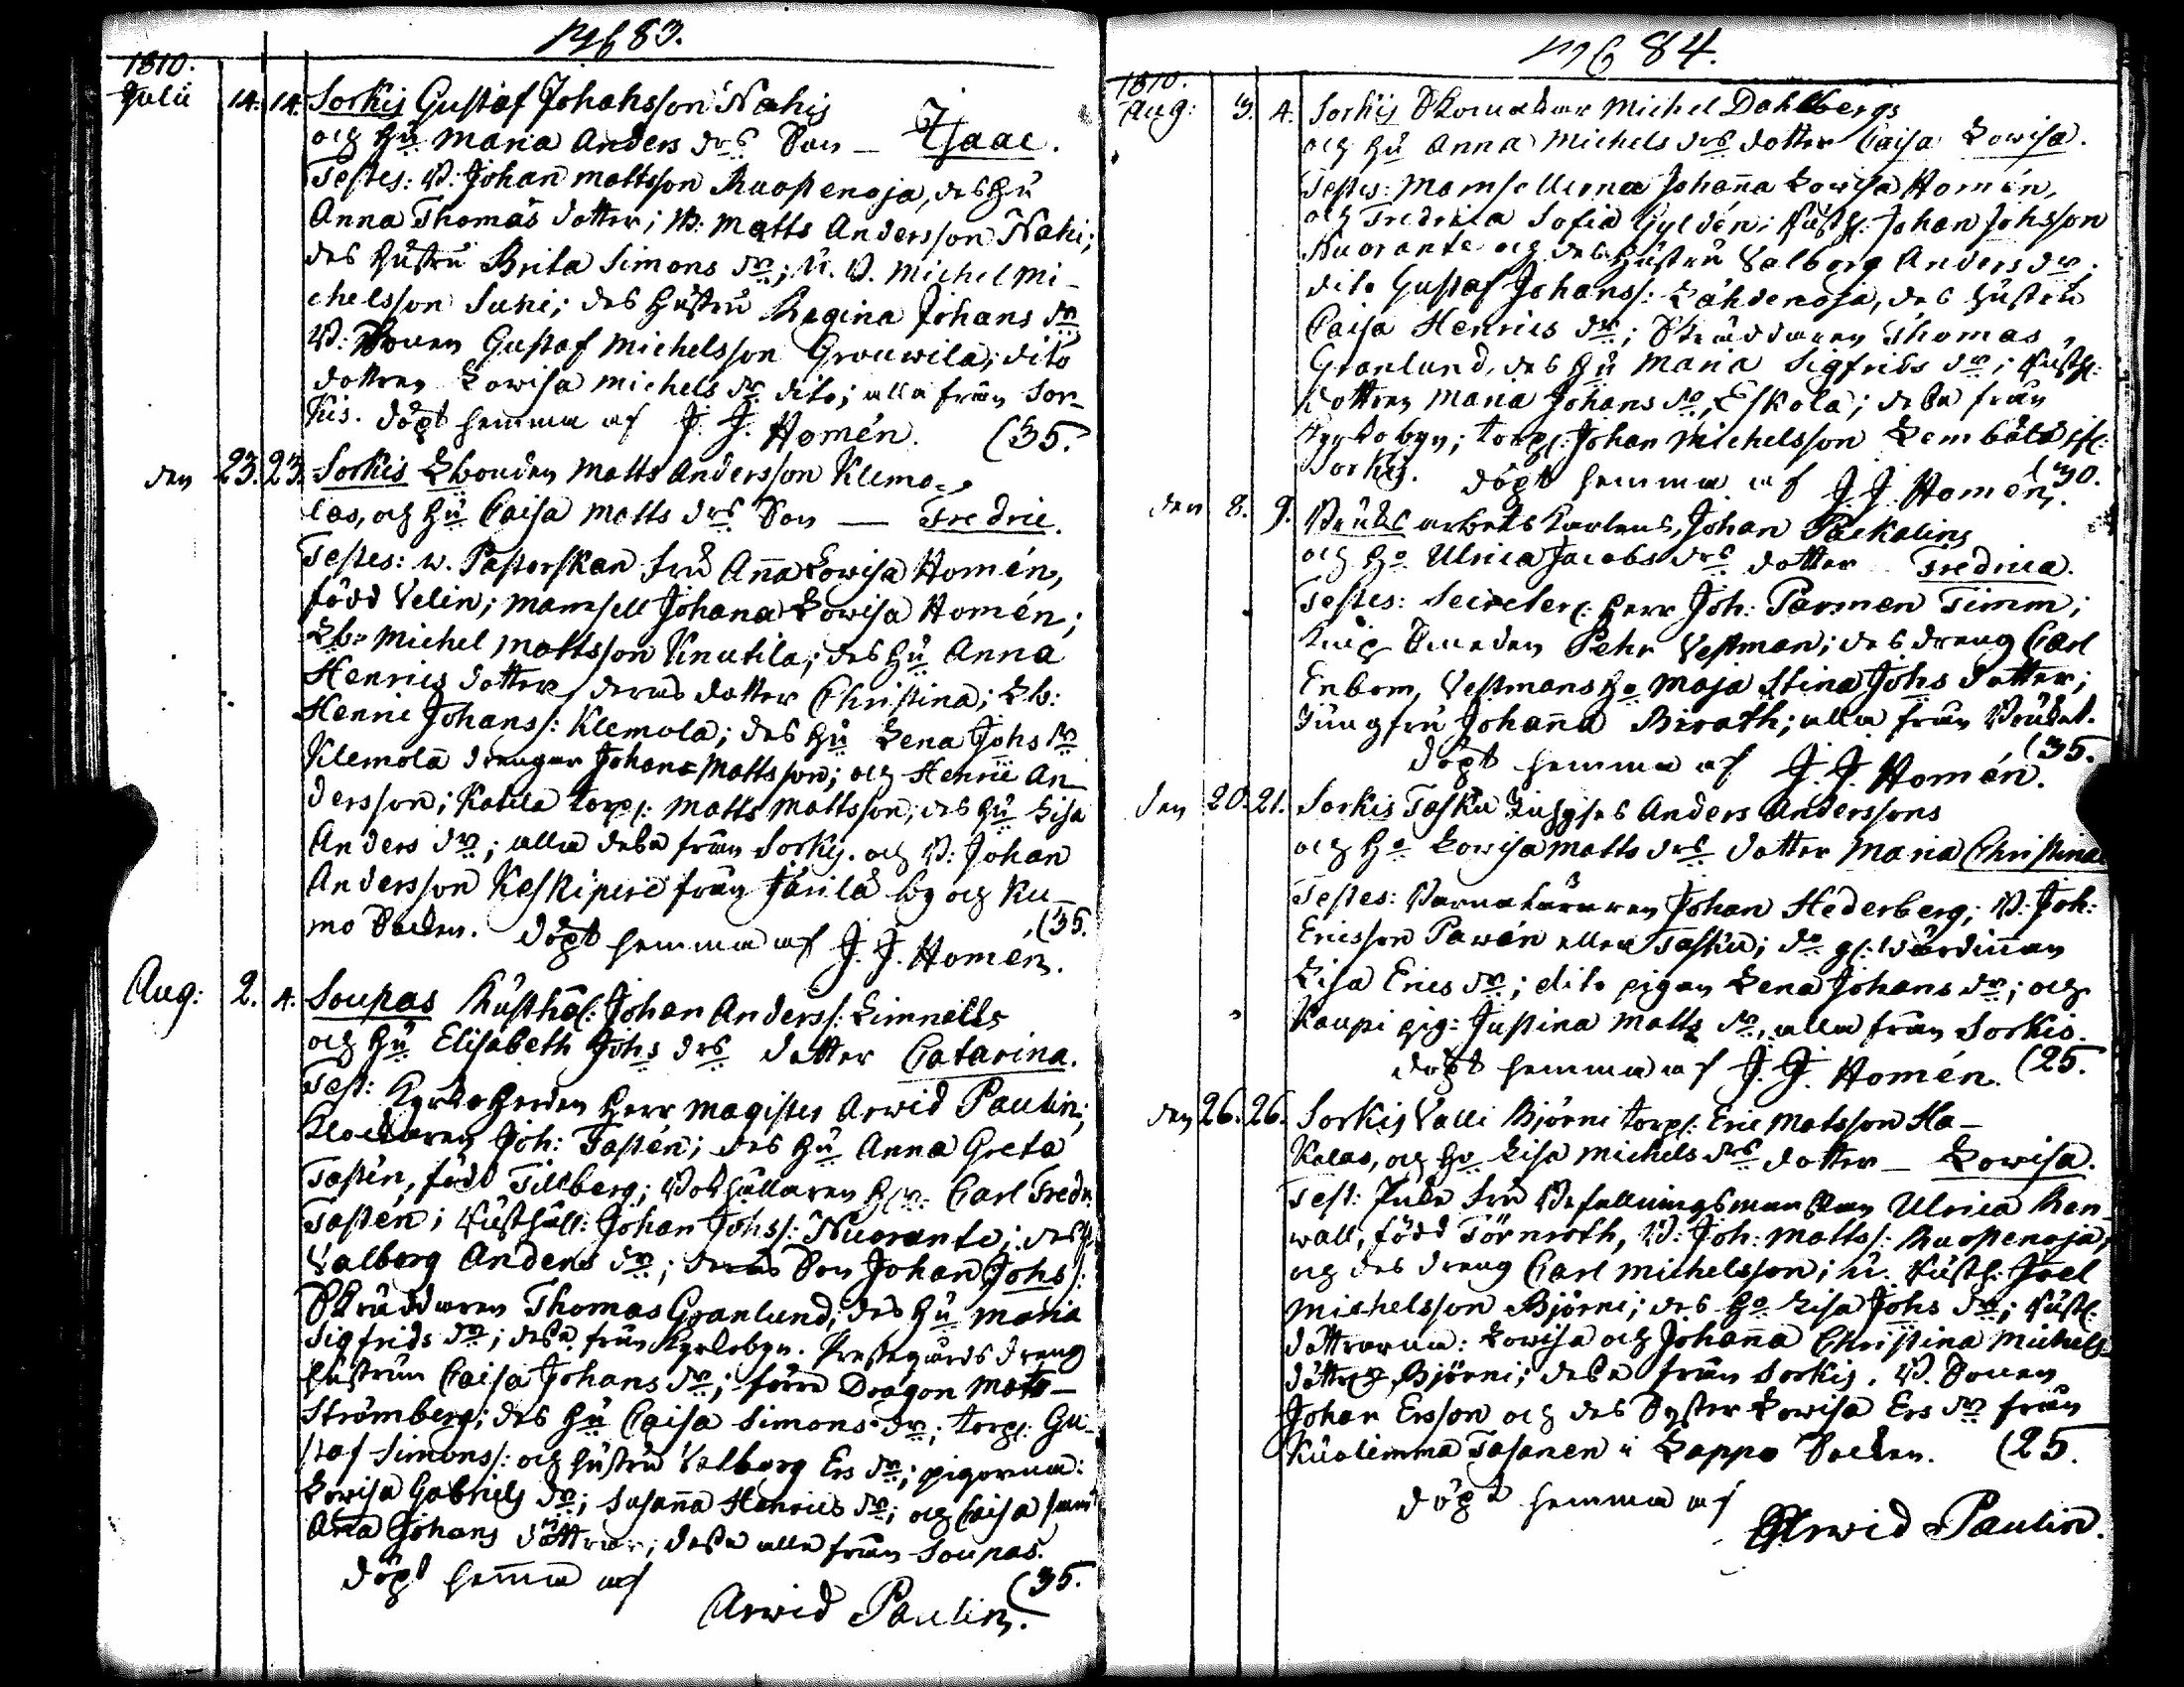 pg 83.
1810.
Julii 14. 14. Sorkis Gustaf Johansson Nahis
och Hu Maria Anders drs Son — Isaac.
Testes: B: Johan Mattsson Ruospenoja, des Hu
Anna Thomas dotter; B: Matts Andersson Nahi;
des Hustru Brita Simons dr; U. B. Michel Mi-
chelsson Suni; des Hustru Regina Johans dr
B: Sonen Gustaf Michelsson Grouwila; dito
dottren Lowisa Michels dr dito; alla från Sor-
kis. döpt hemma af J. J. Homén. (35.
den 23. 23. Sorkis Lbonden Matts Andersson Klemo-
las, och Hu Caisa Matts drs Son — Fredric.
Testes: w. Pastorskan Fru Anna Lowisa Homén,
född Velin; Mamsell Johana Lowisa Homén;
Lb: Michel Mattsson Knutila; des Hu Anna
Henrics dotter, deras dotter Christina; Lb:
Henric Johans: Klemola; des Hu Lena Johs dr
Klemola drengar Johan Mattsson; och Henric An-
dersson; Katila torp: Matts Mattsson; des Hu Lisa
Anders dr; alla dessa från Sorkis. och B: Johan
Andersson Keskipere från Järilä by och Ku-
mo Socken. döpt hemma af J. J. Homén. (35.
Aug: 2. 4. Soupas Rusthål: Johan Anders: Limnells
och Hu Elisabeth Johs drs dotter Catarina.
Test: Kyrkoherden Herr Magister Arwid Paulin;
Klockaren Joh: Tastén; des Hu Anna Greta
Tastén, född Tillberg; Bokhållaren Hr Carl Fredr:
Tastén; Rusthåll: Johan Johs: Nuorante; des H:
Valborg Anders dr; deras Son Johan Johs:
Skräddaren Thomas Granlund; des Hu Maria
Sigfrids dr; dessa från Kyrkobyn. Prestegårds dreng
hustrun Caisa Johans dr; förre Dragon Mats
Strömberg; des Hu Caisa Simons dr; torp: Gu-
staf Simons: och hustru Valborg Ers dr; pigorna:
Lowisa Gabriels dr; Susanna Henrics dr; och Caisa samt
Anna Johans döttrar; dessa alla från Soupas.
döpt hemma af (35.
Arwid Paulin.
pg 84.
1810.
Aug: 3. 4. Sorkis Skomakar Michel Dahlbergs
och Hu Anna Michels drs dotter Caisa Lowisa.
Testes: Mamsellerna Johanna Lowisa Homén,
och Fredrica Sofia Gyldén; Rusth: Johan Johsson
Nuorante och des Hustru Valborg Anders dr;
dito Gustaf Johans: Lähdenoja, des hustru
Caisa Henrics dr; Skräddaren Thomas
Granlund, des Hu Maria Sigfrids dr; Rusth:
dottren Maria Johans dr, Eskola; dessa från
Kyrkobyn; torp: Johan Michelsson
Sorkis. döpt hemma af J. J. Homén. (30.
den 8. 9. Bruks arbets Karlens, Johan Packalins
och Ho Ulrica Jacobs drs dotter Fredrica.
Testes: Secreter: Herr Joh: Parmen Timm;
Knip Smeden Pehr Vestman; des dreng Carl
Enbom, Vestmans Ho Maja Stina Johs dotter;
Jungfru Johanna Birath; alla från Bruket.
döpt hemma af J. J. Homén. (35.
den 20. 21. Sorkis Tasku Anders Anderssons
och Ho Lowisa Matts drs dotter Maria Christina
Testes: Johan Hederberg; B: Joh:
Ericsson Pawén eller Tasku; do gl: Värdinnan
Lisa Erics dr; dito pigan Lena Johans dr; och
Kaupi pig: Justina Matts dr, alla från Sorkis.
döpt hemma af J. J. Homén. (25.
den 26. 26. Sorkis Valli Björni torp: Eric Matsson Ha-
kalas, och Ho Lisa Michels drs dotter — Lowisa.
Test: Fru Befallningsmanskan Ulrica Ren-
wall, född Törnroth, B: Joh: Matts: Ruospenoja,
och des dreng Carl Michelsson; U. Rusth: Joel
Michelsson Björni; des Ho Lisa Johs dr; Rusth:
dottrarna: Lowisa och Johanna Christina Michels
döttrar Björni; dessa från Sorkis. B. Sonen
Johan Ersson och des Syster Lowisa Ers dr från
Kuolimma Tasanen i Lappo Socken. (25.
döpt hemma af
Arwid Paulin.